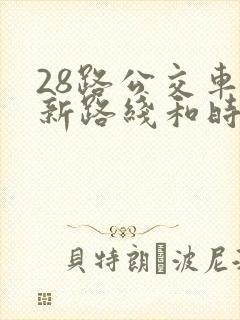 28路公交車
新路綫和時
貝特朗·波尼